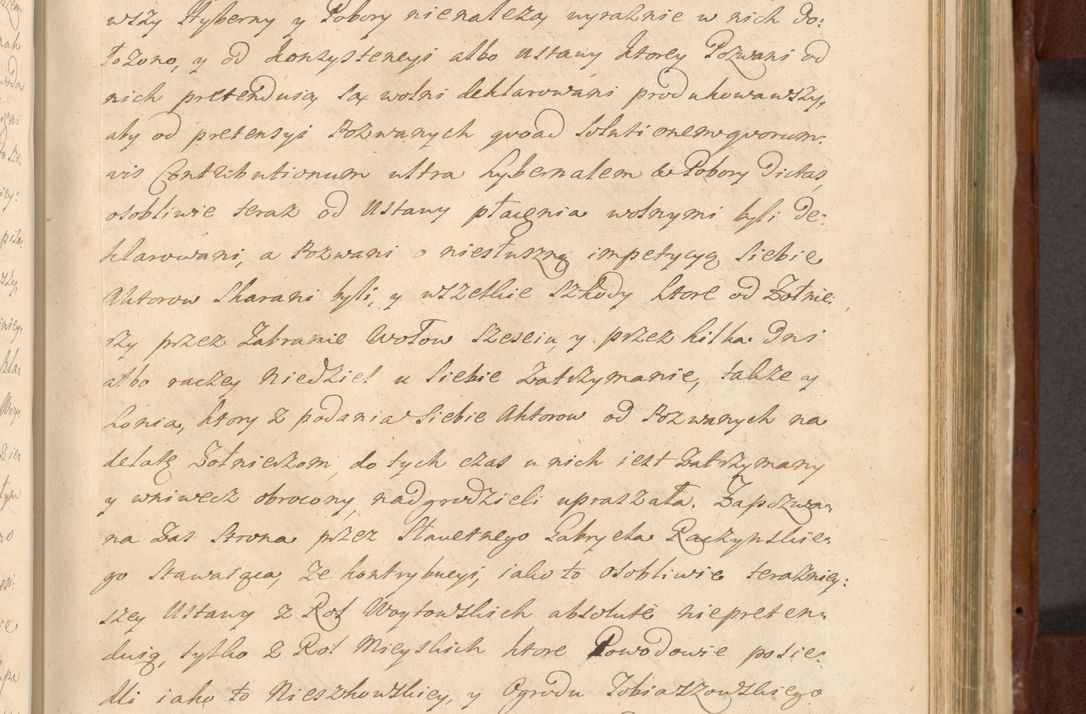 wszy Hyberny y Pobory nienależą wyraźnie w nich do:
łożono, y od konzystencyi albo Ustawy ktorey Pozwani od
nich pretenduią są wolni deklarowani produkowawszy,
aby od pretensyi Pozwanych qvoad Solutionem qvorum:
vis Contributionum ultra hybernalem & Pobory Dictas,
osobliwie teraz od Ustawy płacenia wolnymi byli de:
klarowani, a Pozwani o niesłuszną impetycyą Siebie
Aktorow skarani byli, y wszelkie szkody ktore od Żołnie:
rzy przez Zabranie Wołow Szesciu, y przez kilka Dni
albo raczey Niedziel u Siebie Zatrzymanie, także y
konia, ktory z podania Siebie Aktorow od Pozwanych na
delatę Żołnierzom, do tych czas u nich iest Zatrzymany
y wniwecz obrocony, nadgrodzieli upraszała. Zapozwa:
na Zas Strona przez Sławetnego Gabryela Raczynskie:
go Stawaiąca, że kontrybucyi, iako to osobliwie teraźniey:
szey Ustawy z Rol Woytowskich absolute niepreten:
duią, tylko z Rol Mieyskich ktore Powodowie posie:
dli iako to Nieszkowskiey, y Ogrodu Tobiaszowskiego